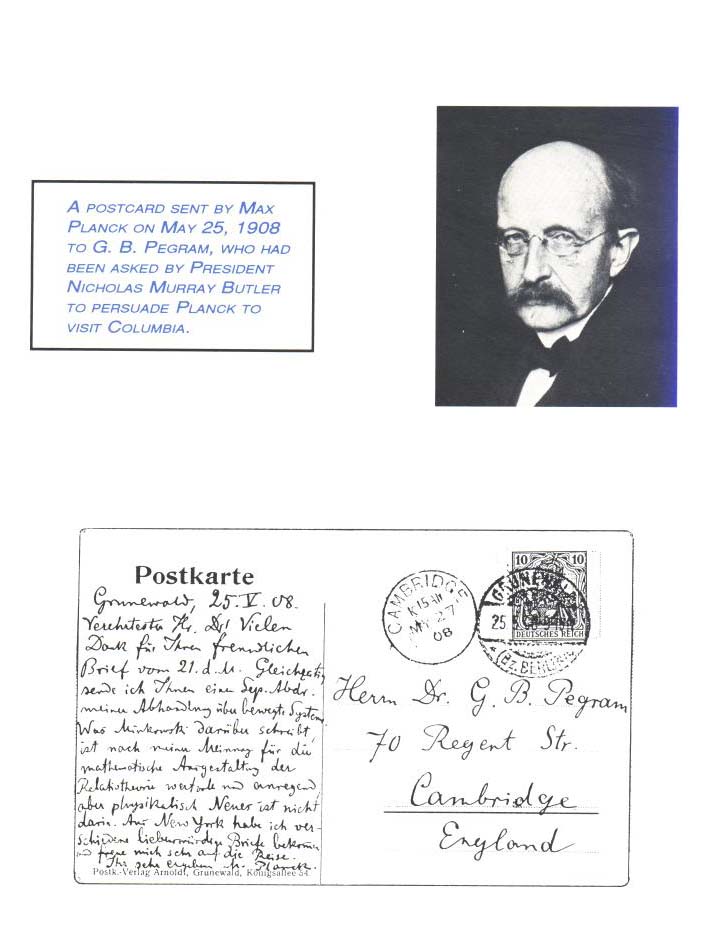 A POSTCARD SENT BY MAX
PLANCK ON MAY 25, 1908
TO G. B. PEGRAM, WHO HAD
BEEN ASKED BY PRESIDENT
NICHOLAS MURRAY BUTLER
TO PERSUADE PLANCK TO
VISIT COLUMBIA.
Postkarte
Grunewald, 25. V. 08.
Verehrtester Hr. Dr! Vielen
Dank für Ihren freundlichen
Brief vom 21. d. M. Gleichzeitig
sende ich Ihnen einen Sep. Abdr.
meiner Abhandlung über bewegte Systeme
Was Minkowski darüber schreibt,
ist nach meiner Meinung für die
mathematische Ausgestaltung der
Relativtheorie wertvoll und anregend,
aber physikalisch Neues ist nicht
darin. Aus New York habe ich ver-
schiedene liebenswürdige Briefe bekommen
und freue mich sehr auf die Reise.
Ihr sehr ergebener M. Planck.
Postk.-Verlag Arnoldt, Grunewald, Königsallee 54.
CAMBRIDGE
MY 27
08
10 10
DEUTSCHES REICH
GRUNEWALD
25.5
Herrn Dr. G. B. Pegram
70 Regent Str.
Cambridge
England